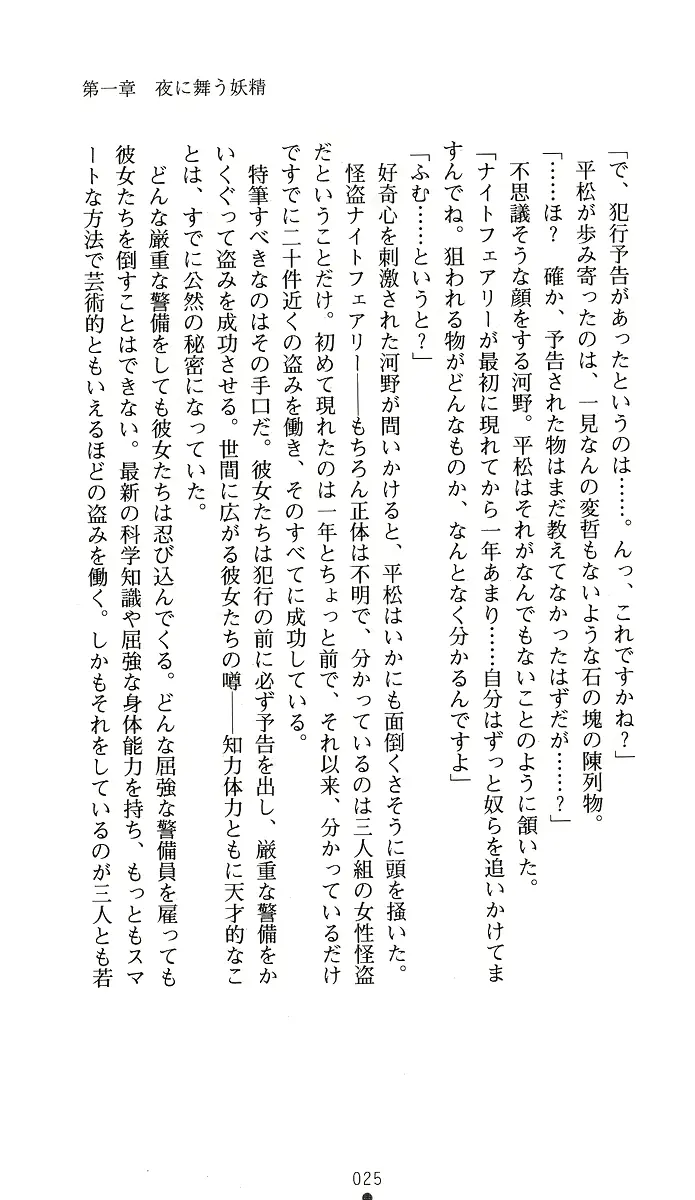 第一章　夜に舞う妖精
「で、犯行予告があったというのは……。んっ、これですかね？」
　平松が歩み寄ったのは、一見なんの変哲もないような石の塊の陳列物。
「……ほ？　確か、予告された物はまだ教えてなかったはずだが……？」
　不思議そうな顔をする河野。平松はそれがなんでもないことのように頷いた。
「ナイトフェアリーが最初に現れてから一年あまり……自分はずっと奴らを追いかけてま
すんでね。狙われる物がどんなものか、なんとなく分かるんですよ」
「ふむ……というと？」
　好奇心を刺激された河野が問いかけると、平松はいかにも面倒くさそうに頭を掻いた。
　怪盗ナイトフェアリー――もちろん正体は不明で、分かっているのは三人組の女性怪盗
だということだけ。初めて現れたのは一年とちょっと前で、それ以来、分かっているだけ
ですでに二十件近くの盗みを働き、そのすべてに成功している。
　特筆すべきなのはその手口だ。彼女たちは犯行の前に必ず予告を出し、厳重な警備をか
いくぐって盗みを成功させる。世間に広がる彼女たちの噂――知力体力ともに天才的なこ
とは、すでに公然の秘密になっていた。
　どんな厳重な警備をしても彼女たちは忍び込んでくる。どんな屈強な警備員を雇っても
彼女たちを倒すことはできない。最新の科学知識や屈強な身体能力を持ち、もっともスマ
ートな方法で芸術的ともいえるほどの盗みを働く。しかもそれをしているのが三人とも若
025